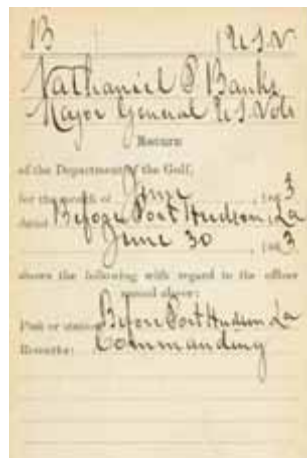 B | U.S.V.
Nathaniel P Banks
Major General U.S. Vols
Return
of the Department of the Gulf,
for the month of June, 1863
dated Before Port Hudson, La
June 30, 1863.
shows the following with regard to the officer
named above:
Post or station: Before Port Hudson La
Remarks: Commanding